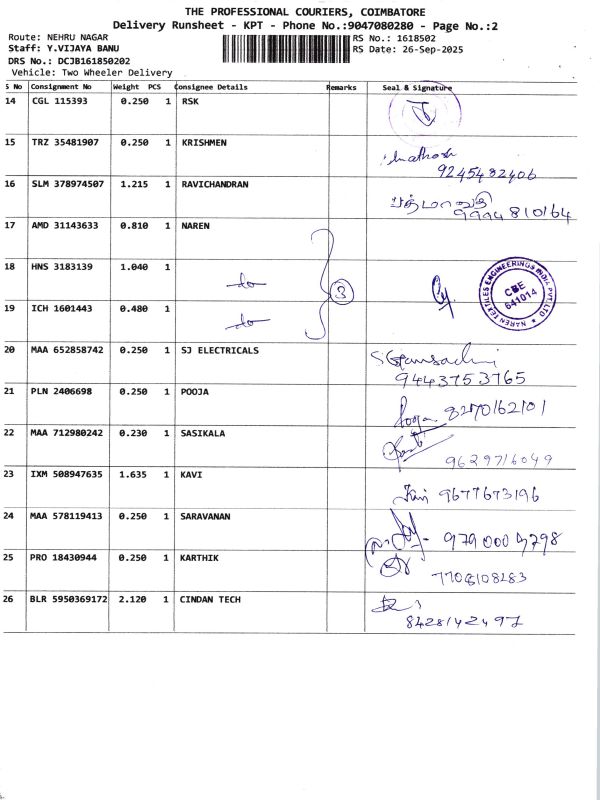 THE PROFESSIONAL COURIERS, COIMBATORE
Delivery Runsheet - KPT - Phone No.:9047080280 - Page No.:2
Route: NEHRU NAGAR RS No.: 1618502
Staff: Y.VIJAYA BANU RS Date: 26-Sep-2025
DRS No.: DCJB161850202
Vehicle: Two Wheeler Delivery
S No Consignment No Weight PCS Consignee Details Remarks Seal & Signature
14 CGL 115393 0.250 1 RSK
15 TRZ 35481907 0.250 1 KRISHMEN
9245482406
16 SLM 378974507 1.215 1 RAVICHANDRAN பத்மாவதி
9994810164
17 AMD 31143633 0.810 1 NAREN
18 HNS 3183139 1.040 1 do 3 NAREN TEXTILES ENGINEERINGS INDIA PVT. LTD CBE 641014
19 ICH 1601443 0.480 1 do
20 MAA 652858742 0.250 1 SJ ELECTRICALS
9443753765
21 PLN 2406698 0.250 1 POOJA Pooja 8270162101
22 MAA 712980242 0.230 1 SASIKALA
9629716049
23 IXM 508947635 1.635 1 KAVI 9677673196
24 MAA 578119413 0.250 1 SARAVANAN
25 PRO 18430944 0.250 1 KARTHIK
7708108283
26 BLR 5950369172 2.120 1 CINDAN TECH
8428142497